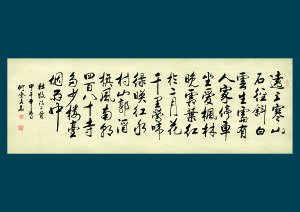 遠上寒山
石徑斜白
雲生處有
人家停車
坐愛楓林
晚霜葉紅
於二月花
千里鶯啼
綠映紅水
村山郭酒
旗風南朝
四百八十寺
多少樓臺
烟雨中
杜牧詩二首